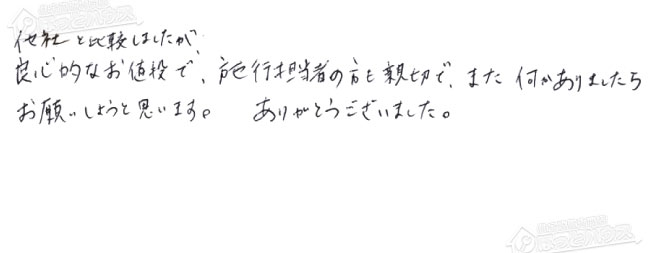 他社と比較しましたが、
良心的なお値段で、施行担当者の方も親切で、また何かありましたら
お願いしようと思います。 ありがとうございました。